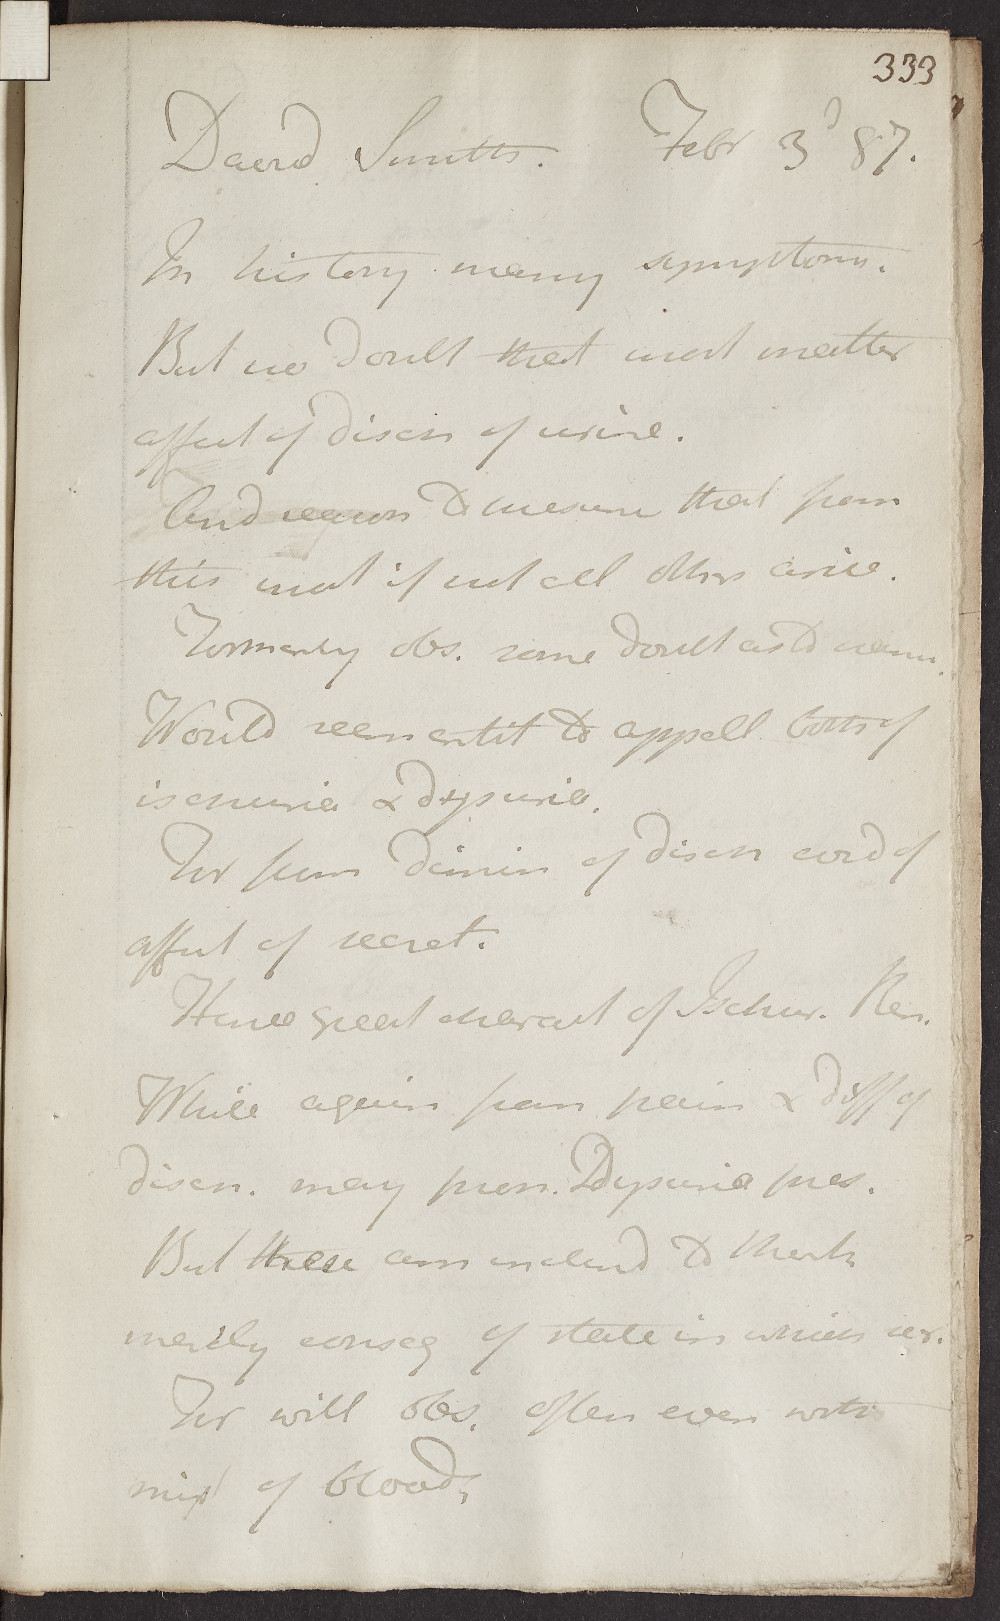 333
David Smith. Febr 3d 87.
In history many symptoms.
But no doubt that most matter
affect of disch of urine.
And reason to presume that from
this most if not all others arise.
Formerly obs. some doubt as to
Would seem entit to appell both of
ischuria & dysuria.
For from dimin of disch evid of
affect of secret.
Hence great charact of Ischur. Ren.
While again from pain & diff of
disch. may pron. Dysuria pres.
But these am inclind to think
merely conseq of state in which secr.
For will obs. often even with
mixt of blood,